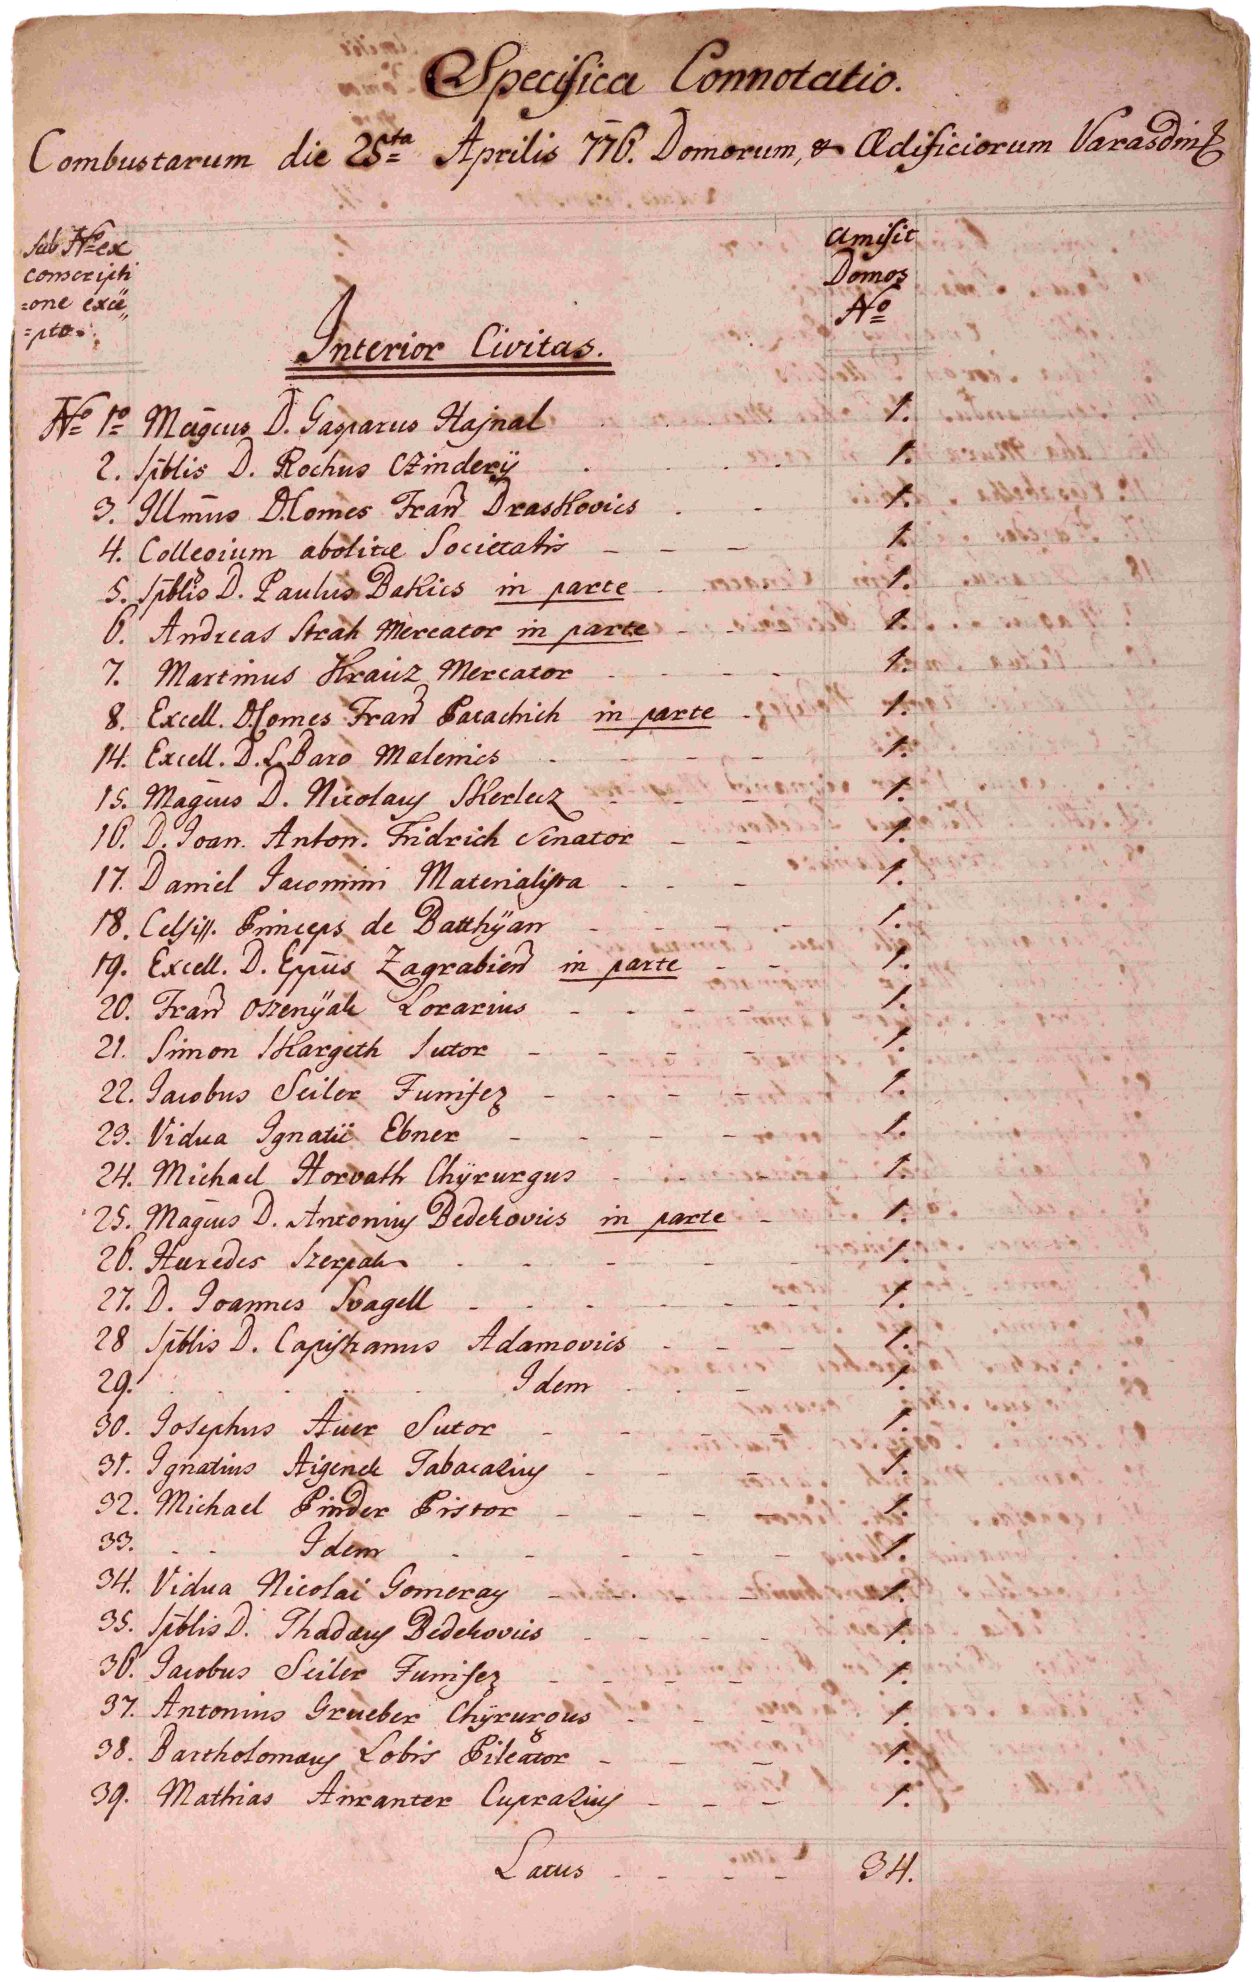 Specifica Connotatio.
Combustarum die 25ta Aprilis 776. Domorum, & Ædificiorum Varasdin
Sub No ex
conscripti
=one exce
=pto.
Amisit
Domos
No
Interior Civitas.
No 1o Magcus D. Gasparus Hajnal 1.
2. Spblis D. Rochus Czinderÿ 1.
3. Illmus D. Comes Fran Draskovics 1.
4. Collegium abolitæ Societatis 1.
5. Spblis D. Paulus Bakics in parte 1.
6. Andreas Strah Mercator in parte 1.
7. Martinus Krauz Mercator 1.
8. Excell. D. Comes Fran Patachich in parte 1.
14. Excell. D. L. Baro Malenics 1.
15. Magcus D. Nicolaus Skerlecz 1.
16. D. Joan. Anton. Fridrich Senator 1.
17. Daniel Jacomini Materialista 1.
18. Celsiss. Princeps de Batthÿan 1.
19. Excell. D. Eppus Zagrabien in parte 1.
20. Fran Oszenÿak Lorarius 1.
21. Simon Skargeth Sutor 1.
22. Jacobus Seiler Funifex 1.
23. Vidua Ignatii Ebner 1.
24. Michael Horvath Chÿrurgus 1.
25. Magcus D. Antonius Bedekovics in parte 1.
26. Hæredes Szerpak 1.
27. D. Joannes Svagell 1.
28 Spblis D. Capistranus Adamovics 1.
29. Idem 1.
30. Josephus Auer Sutor 1.
31. Ignatius Aigenek Tabacarius 1.
32. Michael Pinder Pistor 1.
33. Idem 1.
34. Vidua Nicolai Gomeray 1.
35. Spblis D. Thadæus Bedekovics 1.
36. Jacobus Seiler Funifex 1.
37. Antonius Grueber Chÿrurgus 1.
38. Bartholomæus Lobis Pileator 1.
39. Mathias Anranter Cuprarius 1.
Latus 34.